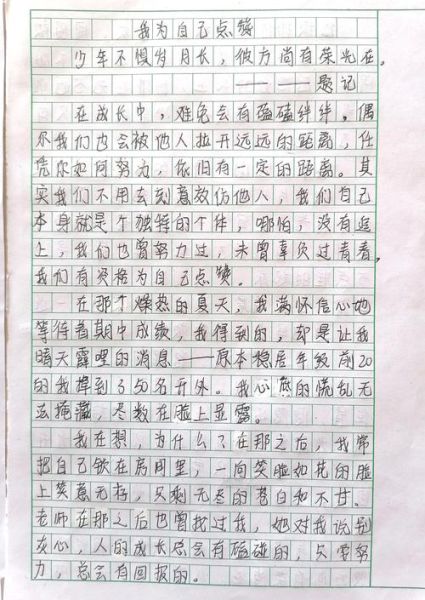 我为自己点赞
少年不惧岁月长,彼方尚有荣光在。
———题记
在成长中,难免会有磕磕绊绊。偶
尔我们也会被他人拉开远远的距离,任
凭你如何努力,依旧有一定的距离。其
实我们不用去刻意效仿他人,我们自己
本身就是个独特的个体,哪怕,没有追
上,我们也曾努力过,未曾辜负过青春。
我们有资格为自己点赞。
在那个燥热的夏天,我满怀信心地
等待着期中成绩,我得到的,却是让我
晴天霹雳的消息——原本稳居年级前20
的我掉到了50名开外。我心底的慌乱无
法掩藏,尽数在脸上显露。
我在想,为什么?在那之后,我常
把自己锁在房间里,一向笑脸如花的脸
上笑意无存,只剩无尽的苍白和不甘。
老师在那之后也曾找过我,她对我说别
灰心,人的成长总会有磕碰的,只要努
力,总会有回报的。